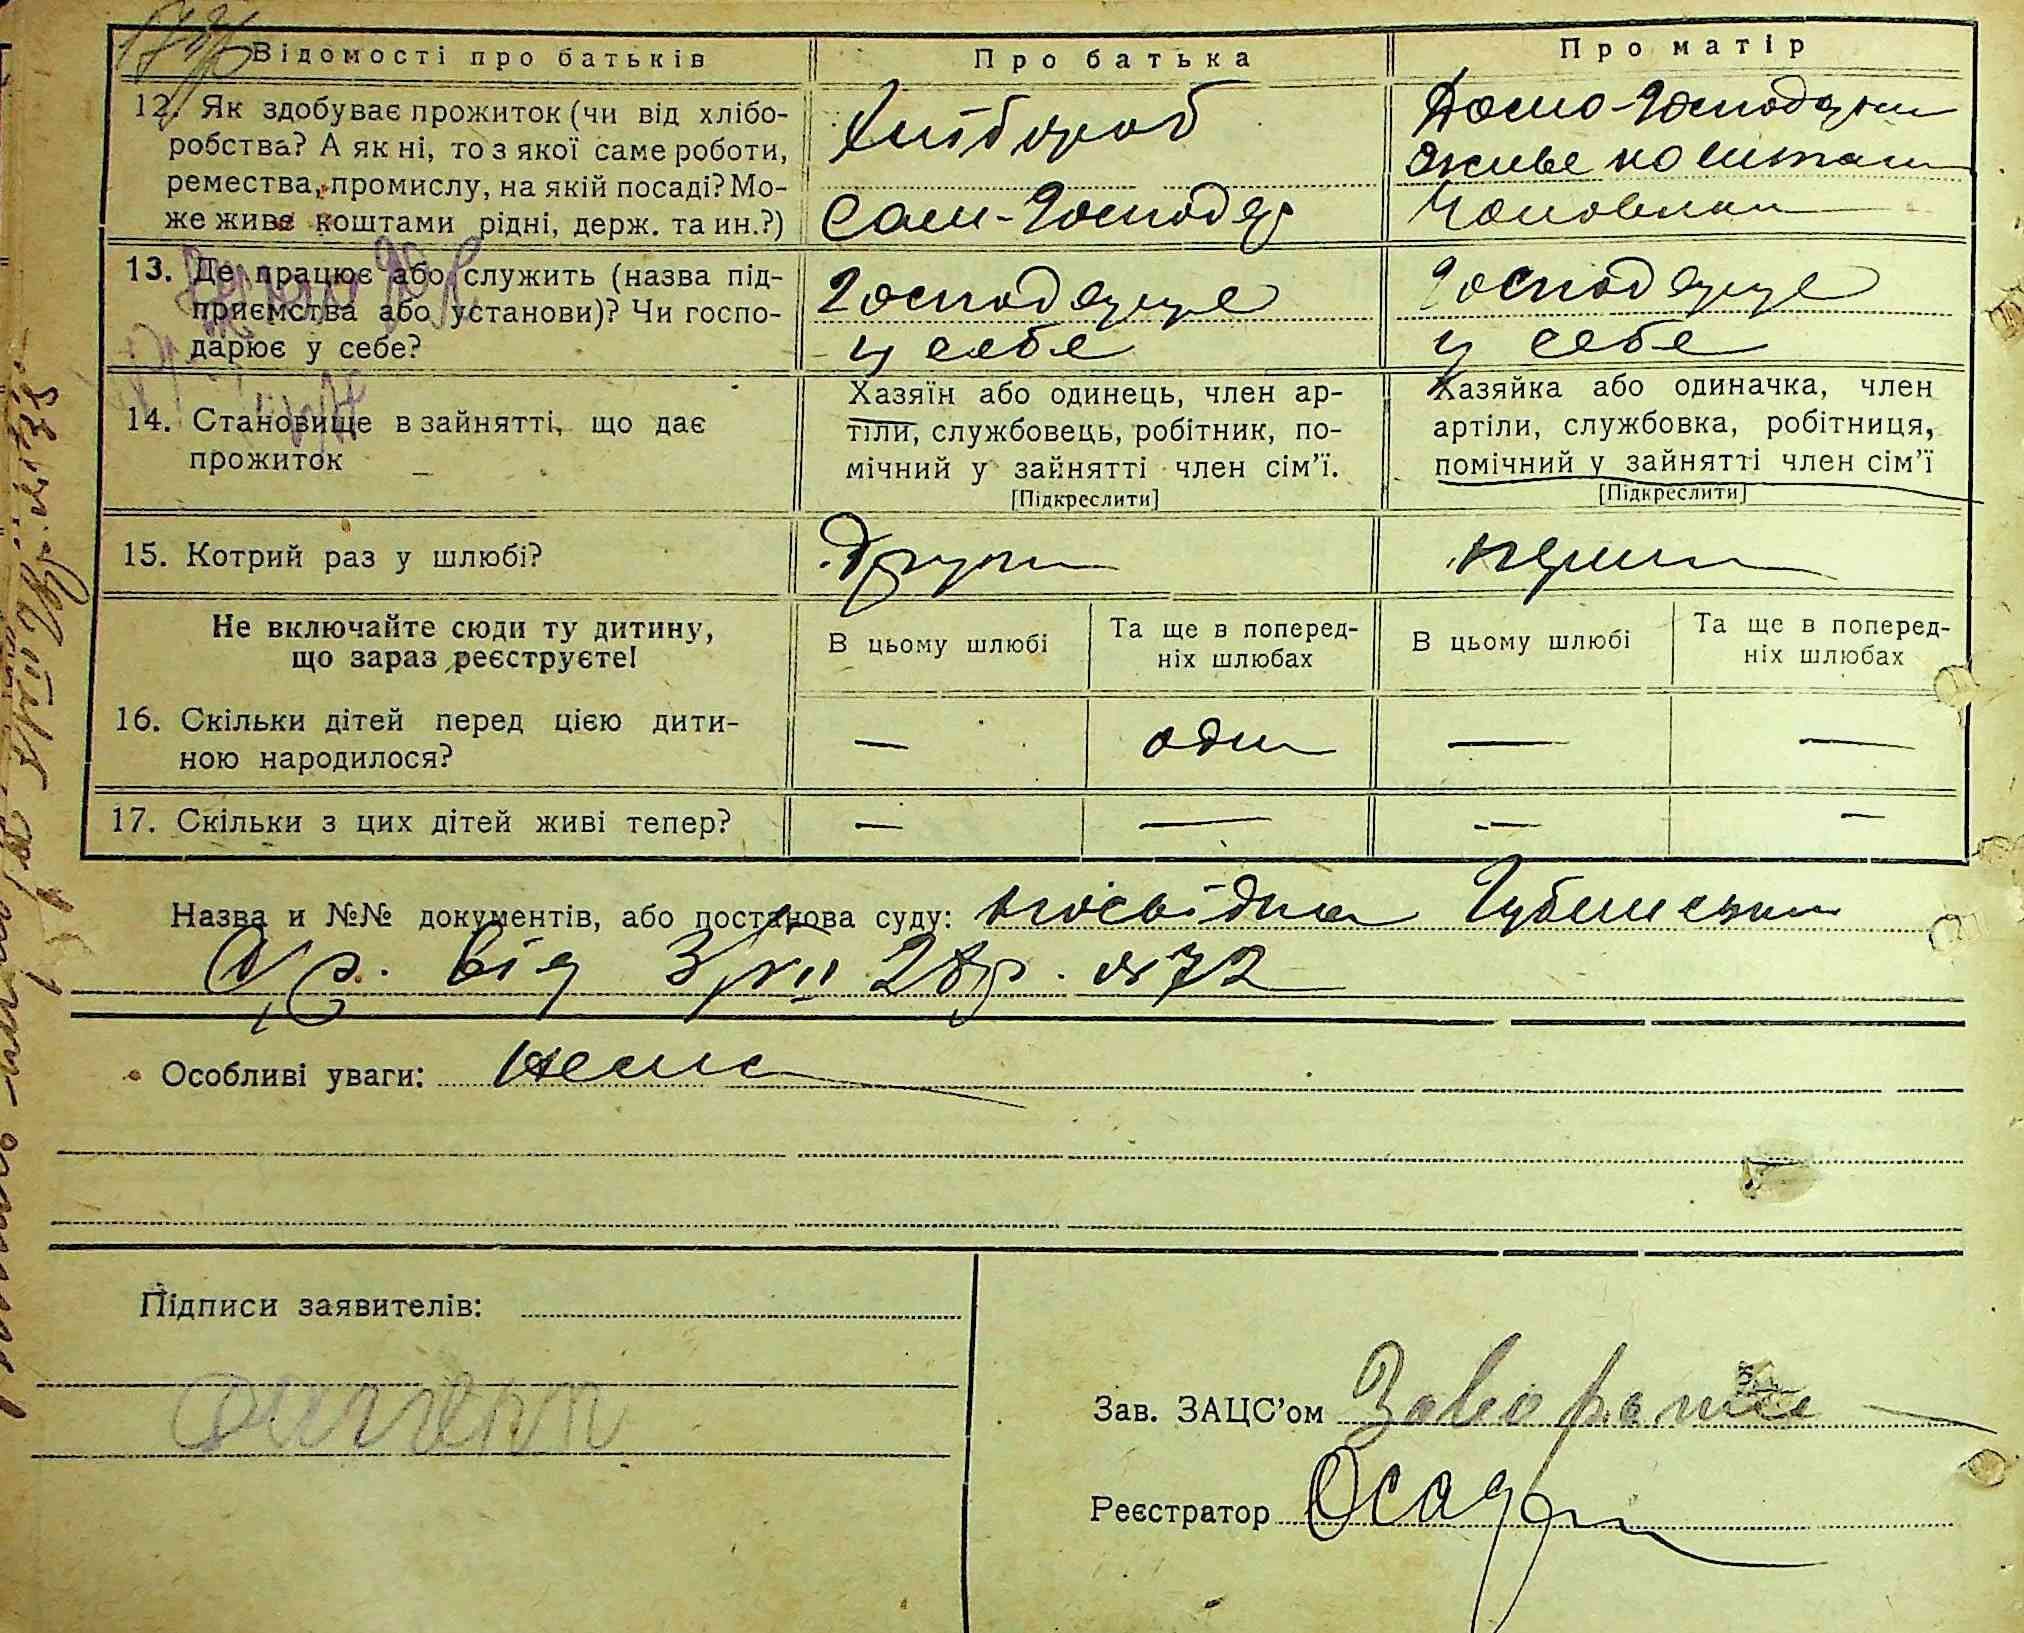 Відомості про батьків
Про батька
Про матір
12. Як здобуває прожиток (чи від хлібо-
робства? А як ні, то з якої саме роботи,
ремества, промислу, на якій посаді? Мо-
же живе коштами рідні, держ. та ин.?)
Хлібороб
Сам-Господар
Домо-Господарка
живе коштами
Чоловіка
13. Де працює або служить (назва під-
приємства або установи)? Чи госпо-
дарює у себе?
Господарує
у себе
Господарує
у себе
14. Становище в зайнятті, що дає
прожиток
Хазяїн або одинець, член ар-
тіли, службовець, робітник, по-
мічний у зайнятті член сім'ї.
[Підкреслити]
Хазяйка або одиначка, член
артіли, службовка, робітниця,
помічний у зайнятті член сім'ї
[Підкреслити]
15. Котрий раз у шлюбі?
Другий
перший
Не включайте сюди ту дитину,
що зараз реєструєте!
В цьому шлюбі
Та ще в поперед-
ніх шлюбах
В цьому шлюбі
Та ще в поперед-
ніх шлюбах
16. Скільки дітей перед цією дити-
ною народилося?
—
один
—
—
17. Скільки з цих дітей живі тепер?
—
—
—
—
Назва и №№ документів, або постанова суду: посвідка
від 28р. № 72
Особливі уваги: нема
Підписи заявителів:
Зав. ЗАЦС'ом
Реєстратор